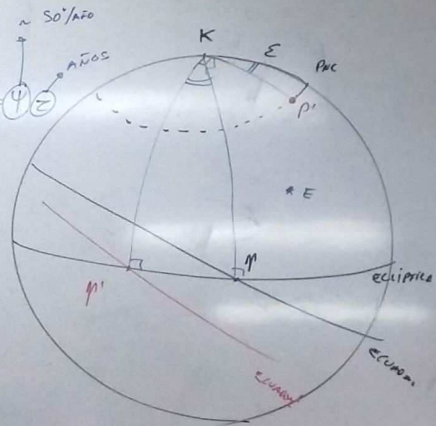 ~ 50"/AÑO
AÑOS
ψ
K
ε
PNC
P'
* E
ECLÍPTICA
γ'
γ
ECUADOR
ECUADOR'